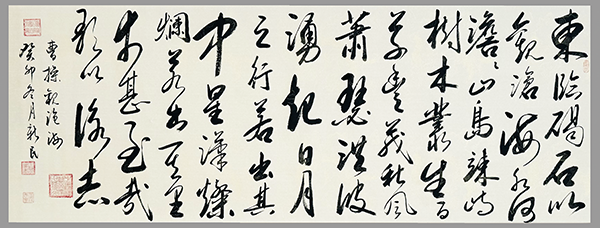 東臨碣石以
觀滄海水何
澹〻山島竦峙
樹木叢生百
草豐茂秋風
蕭瑟洪波
湧起日月
之行若出其
中星漢燦
爛若出其里
幸甚至哉
歌以詠志
曹操觀滄海
癸卯冬月新民